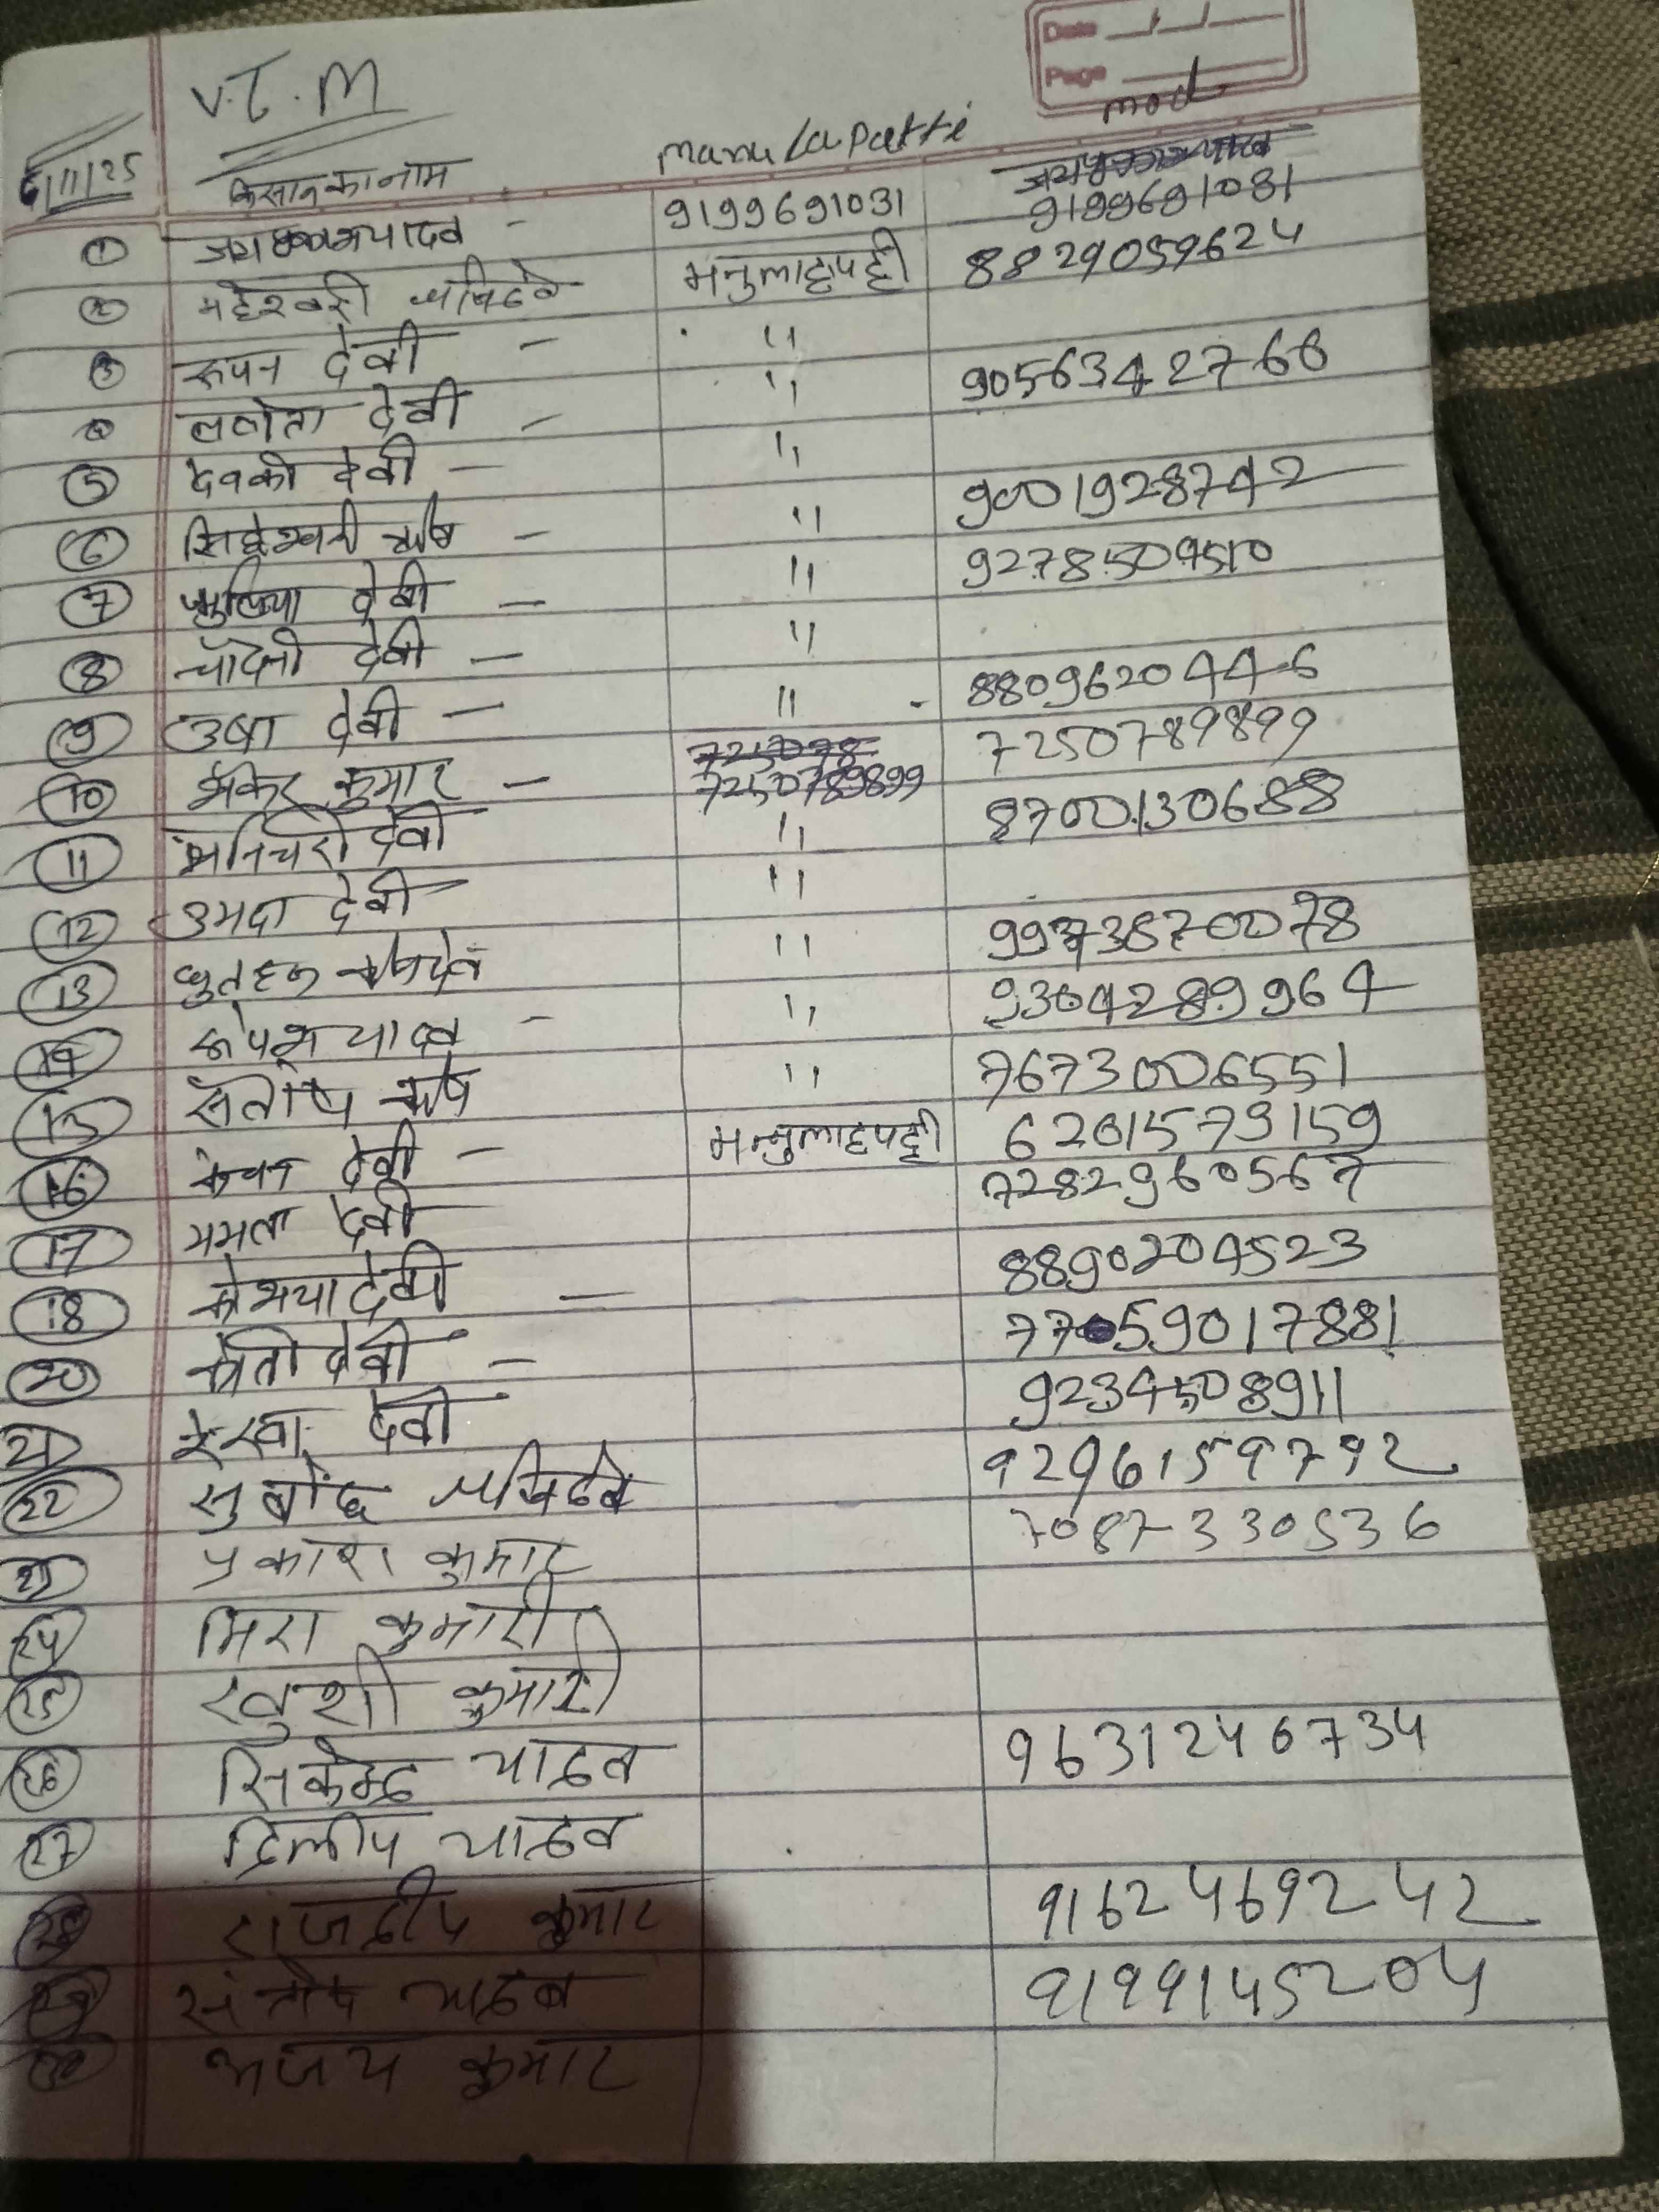 Date
Page
V.T.M
6/11/25 किसान का नाम manulapatti mod
① यादव - 9199691031 9199691031
② महेश्वरी ऋषिदेव मनुलाहपट्टी 8829059624
③ रूपन देवी - "
④ देवी - " 90563427
⑤ देवकी देवी - "
⑥ सिद्धेश्वरी ऋषि - " 9001928742
⑦ देवी - " 9278509510
⑧ चाँदनी देवी - "
⑨ उषा देवी - " 8809620446
⑩ शंकर कुमार - 7250789899 7250789899
⑪ शनिचरी देवी " 8700130688
⑫ उमदा देवी "
⑬ भुतहरु ऋषिदेव " 99738700078
14 रूपेश यादव - " 9304289964
15 संतोष ऋषि " 7673006551
16 देवी - मनुलाहपट्टी 6201579159
17 ममता देवी 7282960567
18 देवी - 8890204523
20 देवी - 77059017881
21 रेखा देवी 9234508911
22 सुबोध ऋषिदेव 9296159792
23 प्रकाश कुमार 7087330536
24 मिरा कुमारी
25 खुशी कुमारी
26 सिकेन्द्र यादव 9631246734
27 दिलीप यादव
28 राजदीप कुमार 9162469242
29 संतोष यादव 9199145204
अजय कुमार